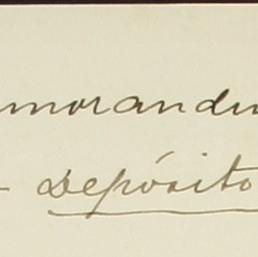 morandu
Depósito